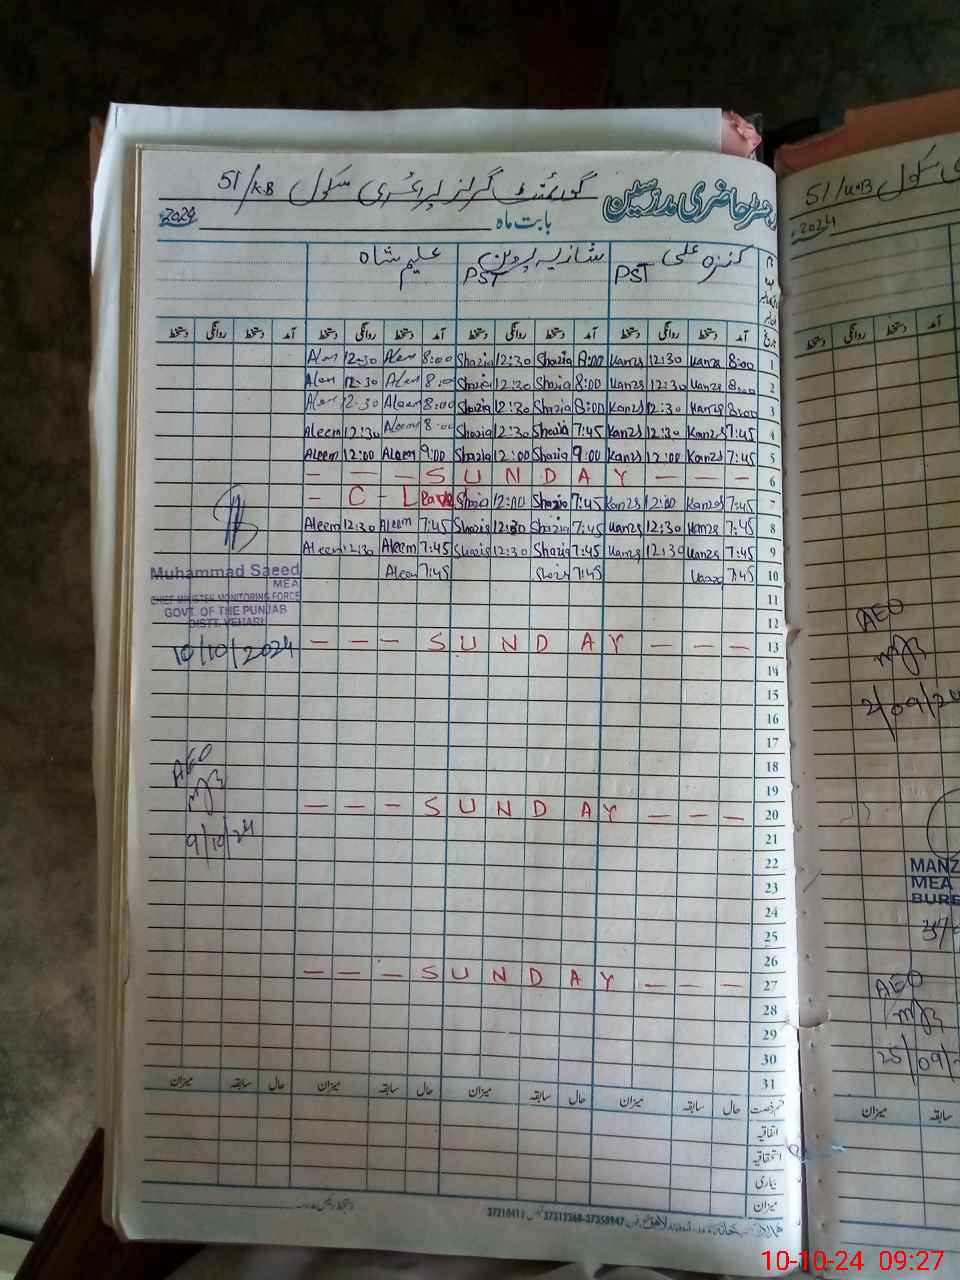 رجسٹر حاضری مدرسین گورنمنٹ گرلز پرائمری سکول 51/K.B
بابت ماہ 2024
کنزہ علی PST شازیہ پروین PST علیم شاہ
تاریخ آمد دستخط روانگی دستخط آمد دستخط روانگی دستخط آمد دستخط روانگی دستخط آمد دستخط روانگی دستخط
Alem 12:30 Alem 8:00 Shazia 12:30 Shazia 8:00 Kanzs 12:30 Kanzs 8:00 1
Alem 12:30 Alem 8:00 Shazia 12:30 Shazia 8:00 Kanzs 12:30 Kanzs 8:00 2
Alem 12:30 Aleem 8:00 Shazia 12:30 Shazia 8:00 Kanzs 12:30 Kanzs 8:00 3
Aleem 12:30 Aleem 8:00 Shazia 12:30 Shazia 7:45 Kanzs 12:30 Kanzs 7:45 4
Aleem 12:00 Aleem 9:00 Shazia 12:00 Shazia 9:00 Kanzs 12:00 Kanzs 7:45 5
- - - S U N D A Y - - - 6
- C - Leave Shazia 12:00 Shazia 7:45 Kanzs 12:00 Kanzs 7:45 7
Aleem 12:30 Aleem 7:45 Shazia 12:30 Shazia 7:45 Kanzs 12:30 Kanzs 7:45 8
Aleem 12:30 Aleem 7:45 Shazia 12:30 Shazia 7:45 Kanzs 12:30 Kanzs 7:45 9
Aleem 7:45 Shazia 7:45 Kanzs 7:45 10
11
12
- - - S U N D A Y - - - 13
14
15
16
17
18
19
- - - S U N D A Y - - - 20
21
22
23
24
25
26
- - - S U N D A Y - - - 27
28
29
30
31
Muhammad Saeed
MEA
CHIEF MINISTER MONITORING FORCE
GOVT. OF THE PUNJAB
DISTT. VEHARI
10/10/2024
AEO
9/10/24
قسم رخصت حال سابقہ میزان حال سابقہ میزان حال سابقہ میزان حال سابقہ میزان
اتفاقیہ
استحقاقیہ
بیماری
میزان
37312368-37350947
51/K.B سکول
2024
آمد دستخط روانگی دستخط
AEO
2/09/24
MANZ
MEA
BURE
AEO
25/09/
سابقہ میزان
10-10-24 09:27